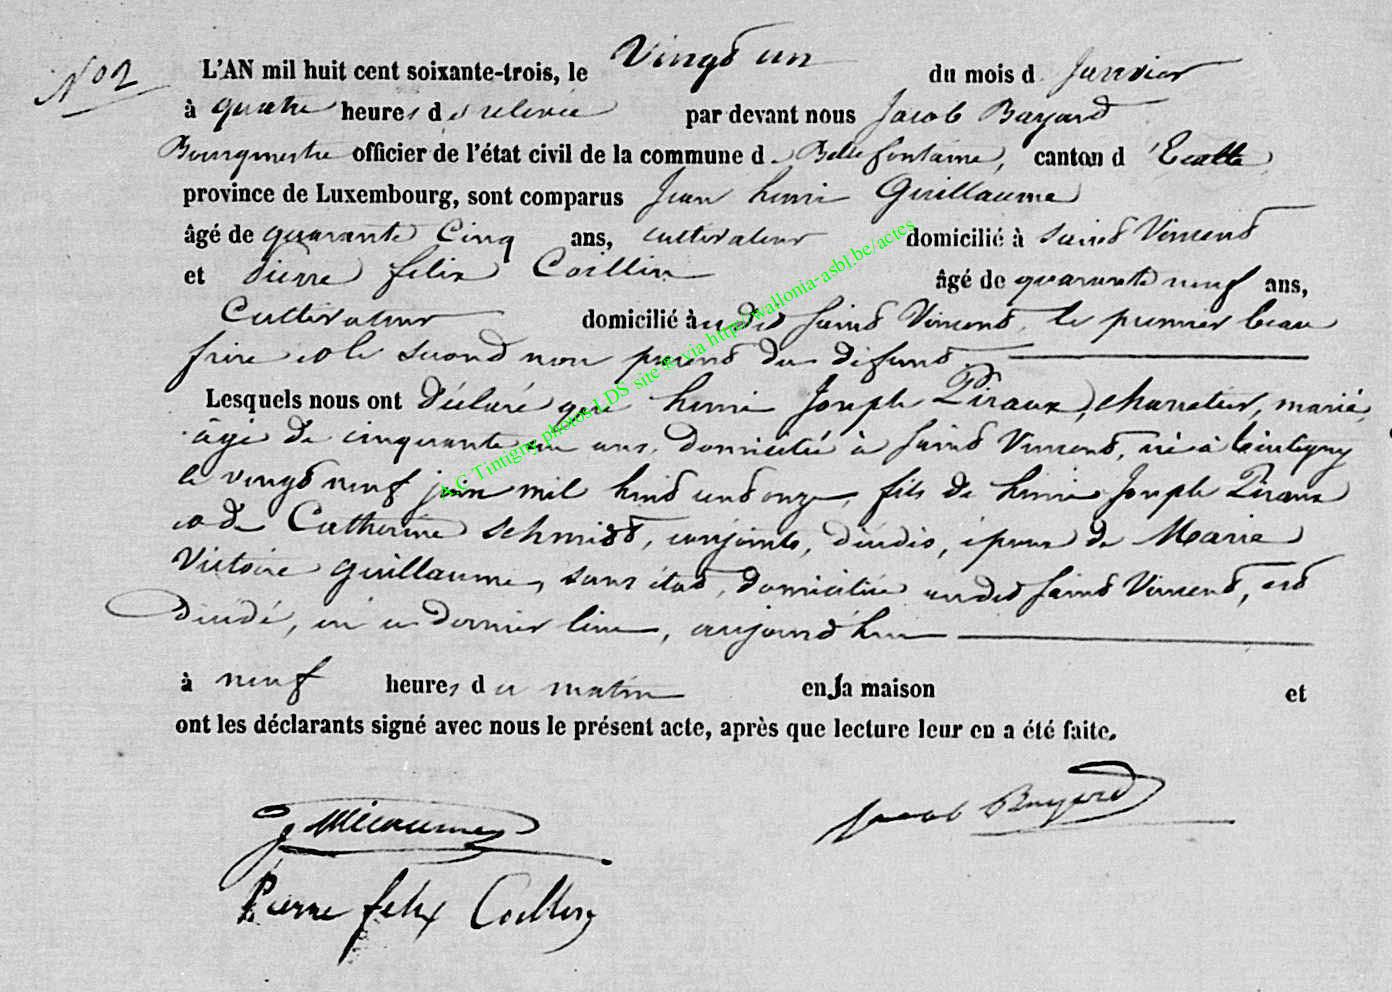 No 2
L'AN mil huit cent soixante-trois, le Vingt un du mois d Janvier
à quatre heures de relevée par devant nous Jacob Bayard
Bourgmestre officier de l'état civil de la commune d Bellefontaine, canton d'Etalle
province de Luxembourg, sont comparus Jean henri Guillaume
âgé de quarante Cinq ans, cultivateur domicilié à saint Vincent
et Pierre felix Coillin âgé de quarante neuf ans,
Cultivateur domicilié à udit saint Vincent, le premier beau
frère et le second non parent du défunt
Lesquels nous ont déclaré que henri Joseph Piraux, charretier, marié,
âgé de cinquante un ans, domicilié à saint Vincent, né à tintigny
le vingt neuf juin mil huit cent onze, fils de henri Joseph Piraux
et de Catherine Schmidt, conjoints, décédés, époux de Marie
Victoire guillaume, sans état, domiciliée audit saint Vincent, est
décédé, en ce dernier lieu, aujourd'hui
à neuf heures du matin en la maison et
ont les déclarants signé avec nous le présent acte, après que lecture leur en a été faite.
Jacob Bayard
Guillaume
Pierre felix Coillin
A.C Tintigny photos LDS site & via http://wallonia-asbl.be/actes